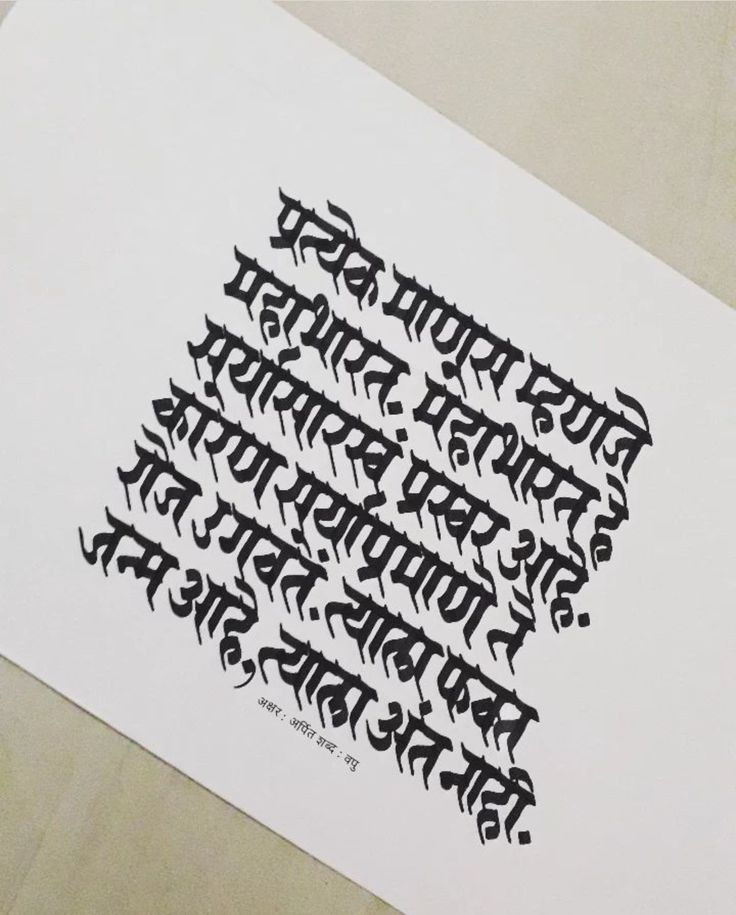 प्रत्येक माणूस म्हणजे
महाभारत. महाभारत हे
सूर्यासारखं प्रखर आहे.
कारण सूर्याप्रमाणे ते
रोज उगवतं. त्याला फक्त
जन्म आहे, त्याला अंत नाही.
अक्षर : अर्पित शब्द : वपु